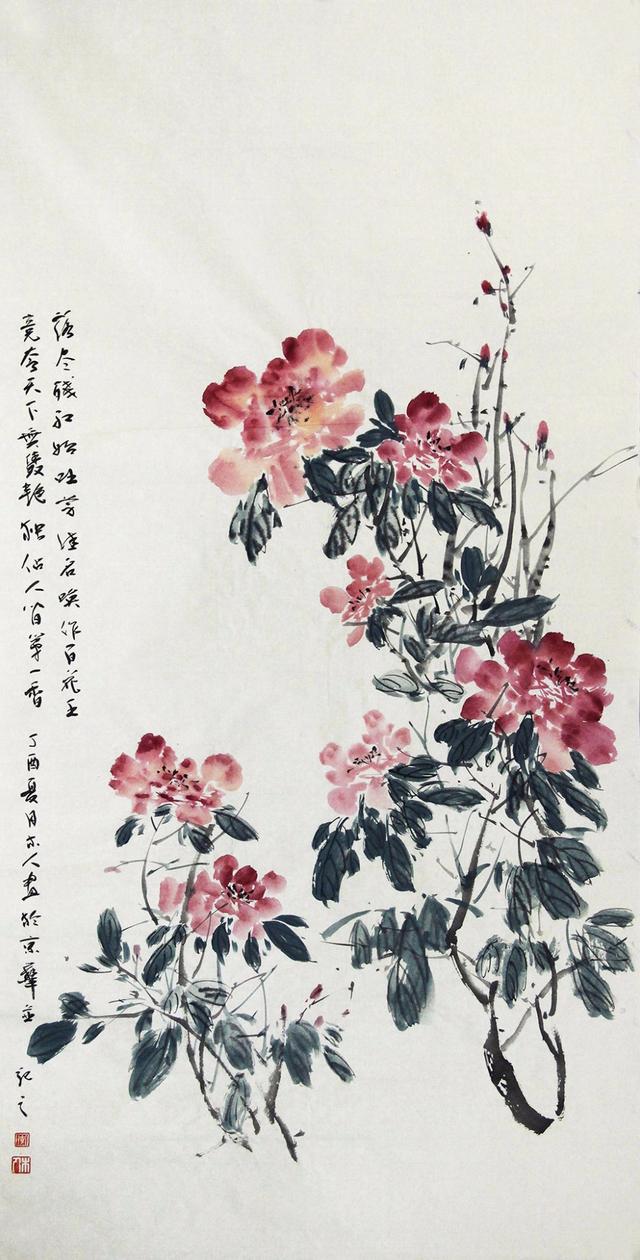 落尽殘红始吐芳佳名唤作百花王
竞夸天下無雙艳独佔人间第一香 丁酉夏月木人画於京華並記之